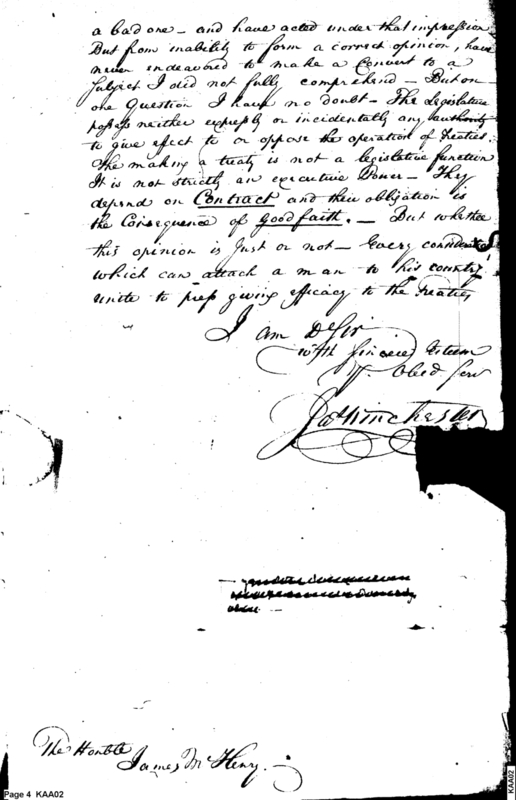 a bad one — and have acted under that impression
But from inability to form a correct opinion, have
never endeavored to make a convert to a
subject I did not fully comprehend — But on
one Question I have no doubt — The Legislature
possess neither expressly or incidentally any authority
to give effect to or oppose the operation of Treaties.
The making a treaty is not a legislative function
It is not strictly an executive Power — They
depend on Contract and their obligation is
the Consequence of good faith. — But whether
this opinion is Just or not — Every consideration
which can attach a man to his country
unite to press giving efficacy to the Treaties
I am D Sir
with sincere Esteem
Yr. Obed Serv
Ja Winchester
The Honble
James McHenry.
Page 4 KAA02
KAA02